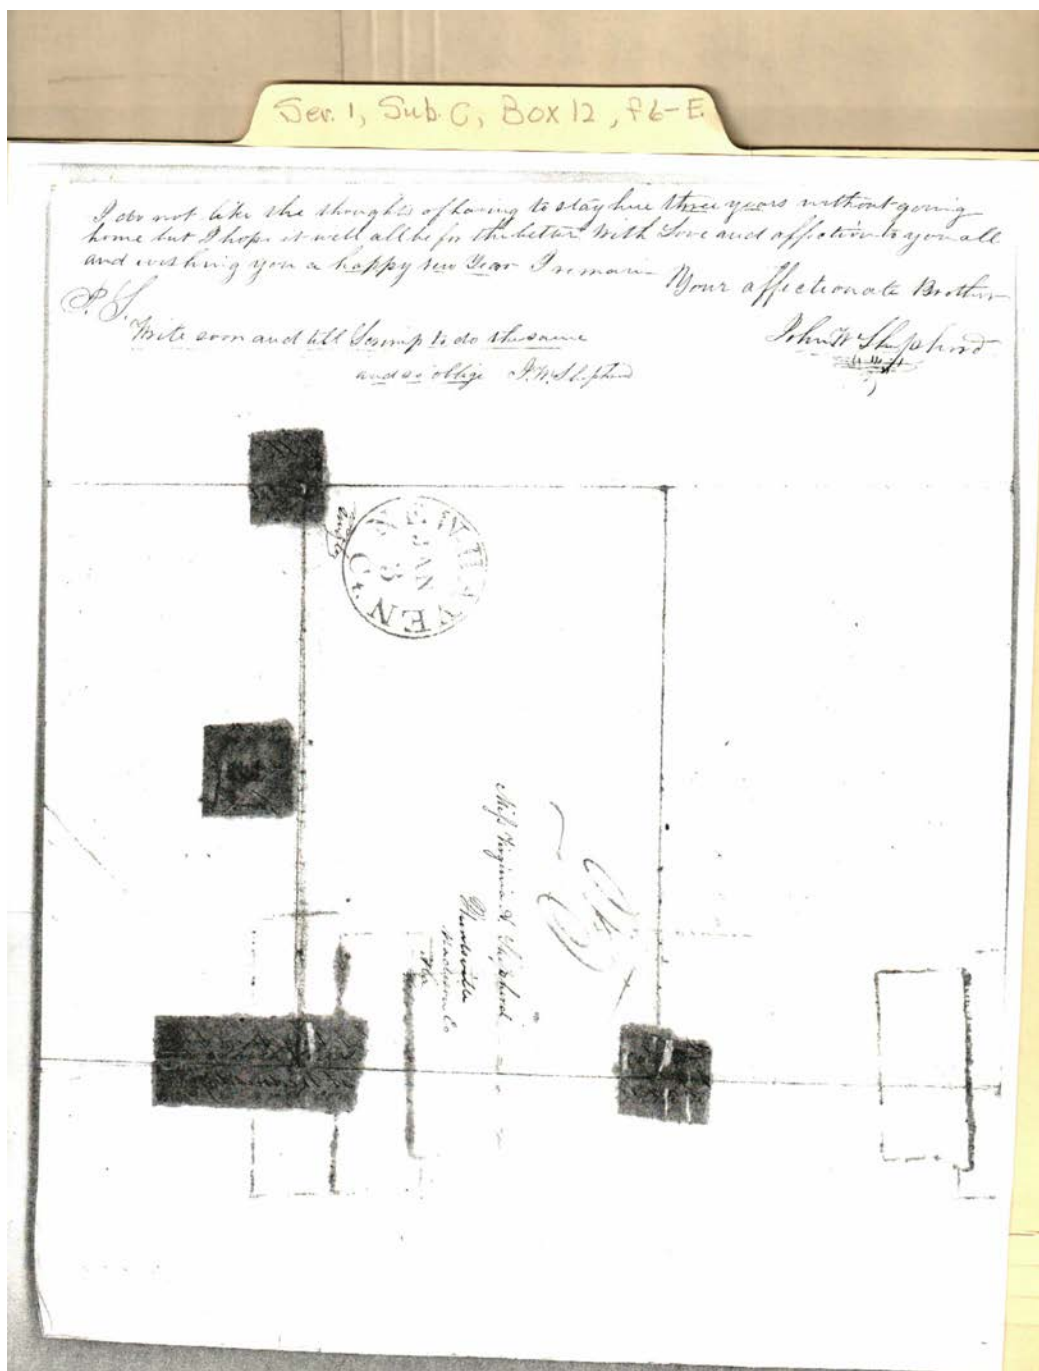 Ser. 1, Sub. C, Box 12, F6-E
I do not like the thoughts of having to stay here three years without going
home but I hope it will all be for the better With Love and affection to you all
and wishing you a happy new Year I remain Your affectionate Brother
John W Shepherd
P.S.
Write soon and tell Scrimp to do the same
and so oblige J. W. Shepherd
NEW-HAVEN Ct.
JAN
3
Single
Miss Virginia A. Shepherd
Huntsville
Madison Co
Ala